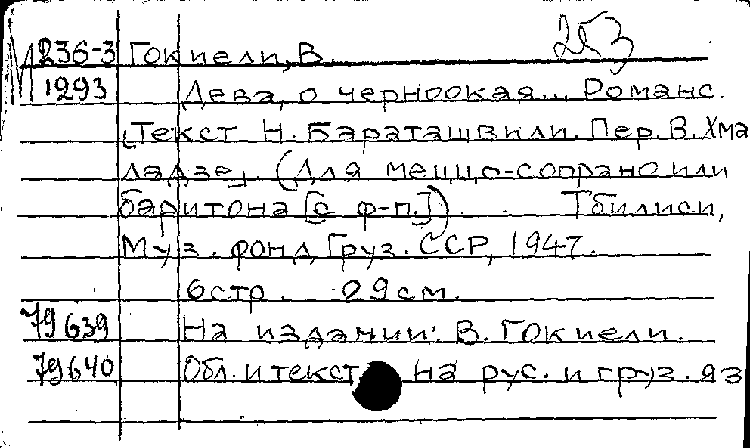 253
М 236-3 Гокиели, В.
1293 Дева, о черноокая... Романс.
[Текст Н. Бараташвили. Пер. В. Хма
ладзе]. (Для меццо-сопрано или
баритона [с ф-п.]). Тбилиси,
Муз. фонд Груз. ССР, 1947.
6 стр. 29 см.
79639 На издании: В. Гокиели.
79640 Обл. и текст на рус. и груз. яз